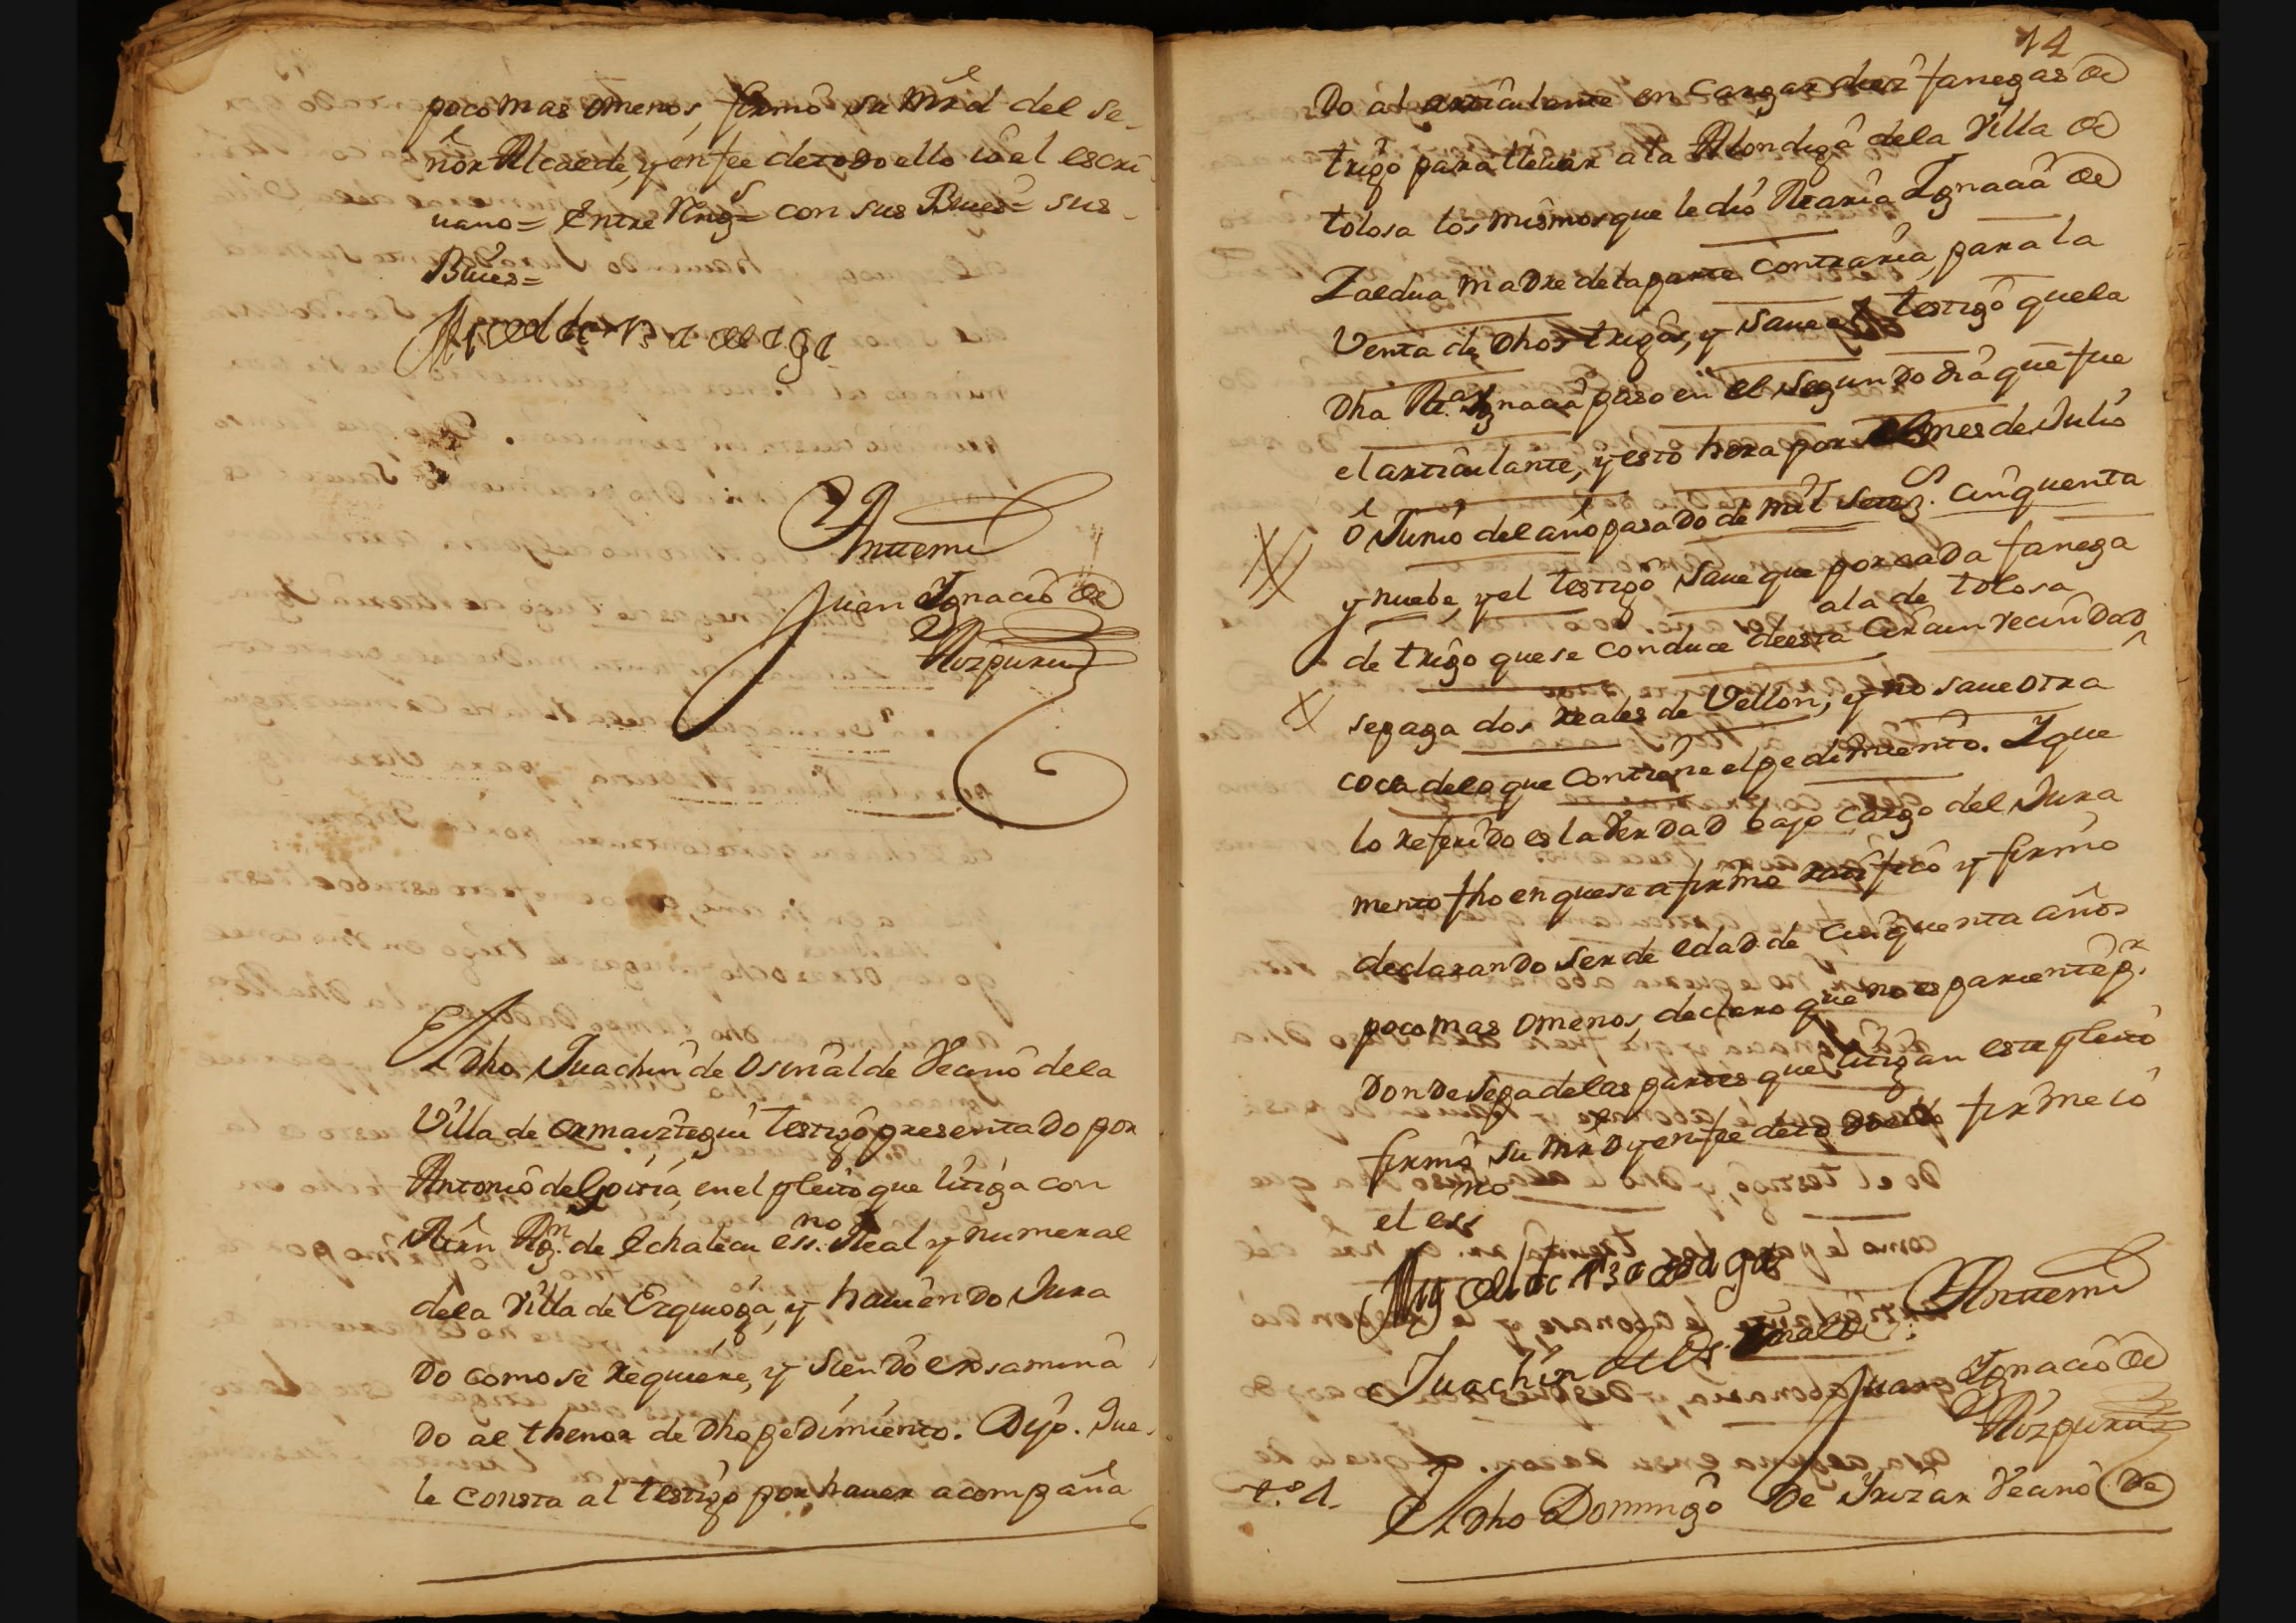 poco mas omenos, firmó su mrd del se-
ñor Alcalde, y enfee detodo ello ió el escri
uano = Entre Rengs = con sus Bues = sus
Bues =
Antemi
Juan Ignacio de
Aizpuru
El dho Juachin de Osinalde Vecino dela
Villa de ormaiztegui testigo presentado por
Antonio de Goiria, en el pleito que litiga con
Mrn Ag.n de Echalecu ess.no Real y numeral
dela Villa de Ezquioga, y hauiendo Jura
do como se requiere, y siendo exsamina
do al thenor de dho pedimiento. Dijo. Que
le consta al testigo por hauer acompaña
14
do al articulante en cargar diez fanegas de
trigo para lleuar ala Alondiga dela Villa de
tolosa los mismos que le dió Maria Ignacia de
Zaldua madre dela parte contraria, para la
Venta de dhos trigos, y saue el testigo que la
dha Ma. Ignacia paso en el segundo dia que fue
el articulante, y esto hera por el mes de Julio
ó Junio del año pasado de mil setez.s cinquenta
y nuebe, y el testigo saue que por cada fanega
ala de tolosa
de trigo que se conduce deesta circunvecindad
sepaga dos reales de Vellon, y no saue otra
cosa delo que contiene el pedimiento. Y que
lo referido es la Verdad bajo cargo del Jura
mento fho en que se afirmo ratificó y firmó
declarando ser de edad de cinquenta años
poco mas omenos, declaro que no es pariente p.r
donde sepa delas partes que litigan este pleito
firmó su mrd y enfee de todo ello firme ió
el ess.no
Juachin de Osinalde
Antemi
Juan Ignacio de
Aizpuru
t.o 4.
El dho Domingo de Irizar Vecino de